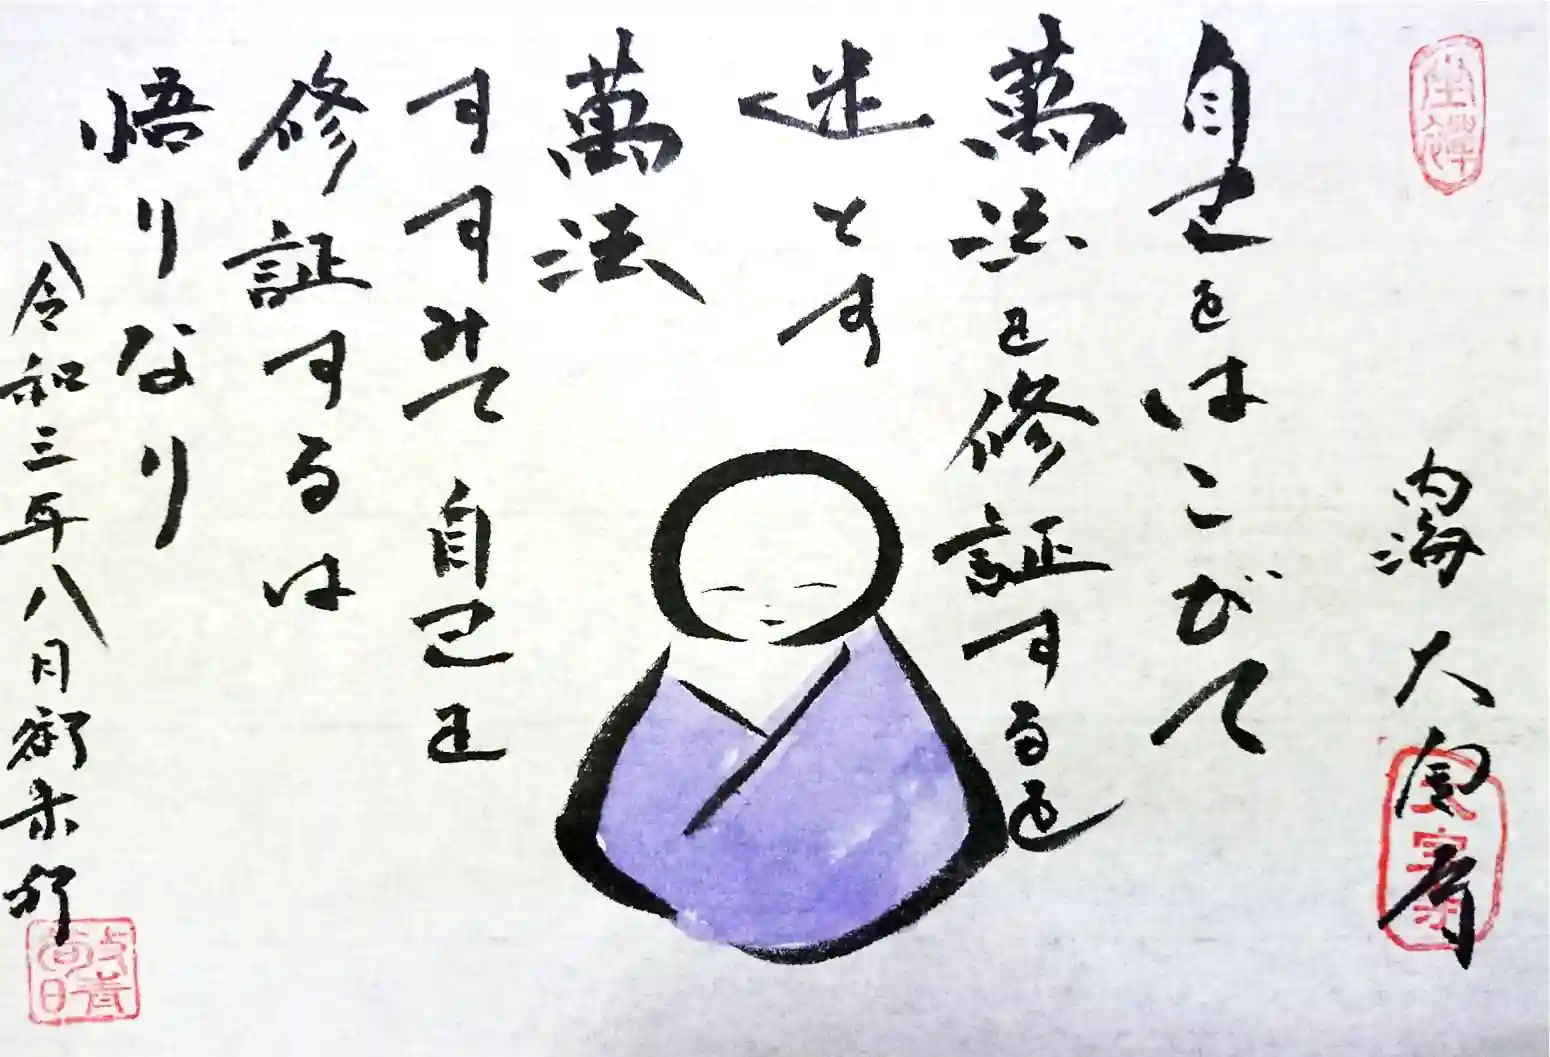 坐禅
内海 大
自己をはこびて
萬法を修証するを
迷とす
萬法
すすみて自己を
修証するは
悟りなり
令和三年八月